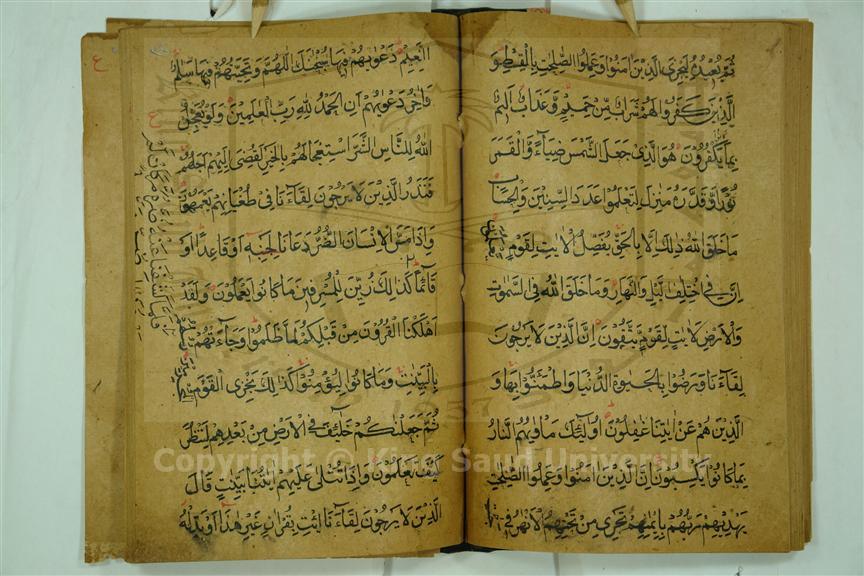 ثم يعيده ليجزى الذين امنوا وعملوا الصلحت بالقسط و
الذين كفروا لهم شراب من حميم وعذاب اليم
بما كانوا يكفرون هو الذى جعل الشمس ضياء والقمر
نورا وقدره منازل لتعلموا عدد السنين والحساب
ما خلق الله ذلك الا بالحق يفصل الايت لقوم يعلمون
ان فى اختلف اليل والنهار وما خلق الله فى السموت
والارض لايت لقوم يتقون ان الذين لا يرجون
لقاءنا ورضوا بالحيوة الدنيا واطمئنوا بها و
الذين هم عن ايتنا غفلون اولئك ماويهم النار
بما كانوا يكسبون ان الذين امنوا وعملوا الصلحت
يهديهم ربهم بايمنهم تجرى من تحتهم الانهر فى
النعيم دعويهم فيها سبحنك اللهم وتحيتهم فيها سلم
واخر دعويهم ان الحمد لله رب العلمين ولو يعجل
الله للناس الشر استعجالهم بالخير لقضى اليهم اجلهم
فنذر الذين لا يرجون لقاءنا فى طغيانهم يعمهون
واذا مس الانسان الضر دعانا لجنبه او قاعدا او
قائما كذلك زين للمسرفين ما كانوا يعملون ولقد
اهلكنا القرون من قبلكم لما ظلموا وجاءتهم
بالبينت وما كانوا ليؤمنوا كذلك نجزى القوم
ثم جعلنكم خلئف فى الارض من بعدهم لننظر
كيف تعملون واذا تتلى عليهم ايتنا بينت قال
الذين لا يرجون لقاءنا ائت بقران غير هذا او بدله
Copyright © King Saud University
1957